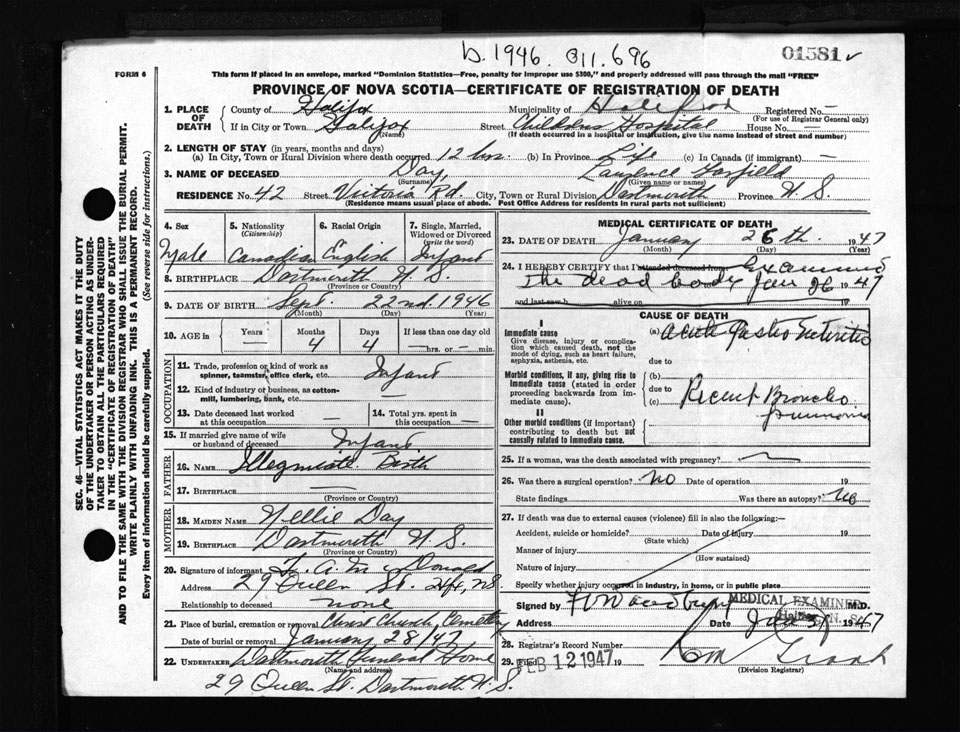 b. 1946. 011.696
01581
FORM 6
This form if placed in an envelope, marked "Dominion Statistics—Free, penalty for improper use $300," and properly addressed will pass through the mail "FREE"
PROVINCE OF NOVA SCOTIA—CERTIFICATE OF REGISTRATION OF DEATH
1. PLACE OF DEATH
County of Halifax Municipality of Registered No.—
(For use of Registrar General only)
If in City or Town Halifax Street Childrens Hospital House No. —
(Name) (If death occurred in a hospital or institution, give the name instead of street and number)
2. LENGTH OF STAY (in years, months and days)
(a) In City, Town or Rural Division where death occurred 12 hrs. (b) In Province Life (c) In Canada (if immigrant) —
3. NAME OF DECEASED Day, Laurence
(Surname) (Given name or names)
RESIDENCE No. 42 Street Victoria Rd. City, Town or Rural Division Dartmouth Province N.S.
(Residence means usual place of abode. Post Office Address for residents in rural parts not sufficient)
4. Sex
Male
5. Nationality
(Citizenship)
Canadian
6. Racial Origin
English
7. Single, Married, Widowed or Divorced
(write the word)
Infant
8. BIRTHPLACE Dartmouth N.S.
(Province or Country)
9. DATE OF BIRTH Sept. 22nd. 1946
(Month) (Day) (Year)
10. AGE in
Years — Months 4 Days 4 If less than one day
— hrs. or — min.
OCCUPATION
11. Trade, profession or kind of work as spinner, teamster, office clerk, etc. Infant
12. Kind of industry or business, as cotton-mill, lumbering, bank, etc. —
13. Date deceased last worked at this occupation —
14. Total yrs. spent in this occupation —
15. If married give name of wife or husband of deceased Infant
FATHER
16. NAME Illegmiate Birth
17. BIRTHPLACE —
(Province or Country)
MOTHER
18. MAIDEN NAME Nellie Day
19. BIRTHPLACE Dartmouth N.S.
(Province or Country)
20. Signature of informant A. McDonald
Address 29 Queen St. Hfx, NS
Relationship to deceased none
21. Place of burial, cremation or removal Christ Church, Cemetery
Date of burial or removal January 28/47,
22. UNDERTAKER Dartmouth Funeral Home
(Name and address)
29 Queen St. Dartmouth N.S.
MEDICAL CERTIFICATE OF DEATH
23. DATE OF DEATH January 26th. 1947
(Month) (Day) (Year)
24. I HEREBY CERTIFY that I attended deceased from examined
the dead body Jan 26 1947
and last saw h alive on
CAUSE OF DEATH
I
Immediate cause
Give disease, injury or complication which caused death, not the mode of dying, such as heart failure, asphyxia, asthenia, etc.
(a) Acute Gastro Enteritis
due to
Morbid conditions, if any, giving rise to immediate cause (stated in order proceeding backwards from immediate cause).
(b)
due to
(c) Recent Broncho pneumonia
II
Other morbid conditions (if important) contributing to death but not causally related to immediate cause.
25. If a woman, was the death associated with pregnancy?
26. Was there a surgical operation? No Date of operation 19
State findings Was there an autopsy?
27. If death was due to external causes (violence) fill in also the following:—
Accident, suicide or homicide? Date of injury 19
(State which)
Manner of injury
(How sustained)
Nature of injury
Specify whether injury occurred in industry, in home, or in public place
Signed by M.D.
MEDICAL EXAMINER
Halifax, N. S.
Address Date 1947
28. Registrar's Record Number
29. Filed FEB 12 1947 19
(Division Registrar)
SEC. 46—VITAL STATISTICS ACT MAKES IT THE DUTY
OF THE UNDERTAKER OR PERSON ACTING AS UNDER-
TAKER TO OBTAIN ALL THE PARTICULARS REQUIRED
IN THE "CERTIFICATE OF REGISTRATION OF DEATH"
AND TO FILE THE SAME WITH THE DIVISION REGISTRAR WHO SHALL ISSUE THE BURIAL PERMIT.
WRITE PLAINLY WITH UNFADING INK. THIS IS A PERMANENT RECORD.
Every item of information should be carefully supplied. (See reverse side for instructions.)